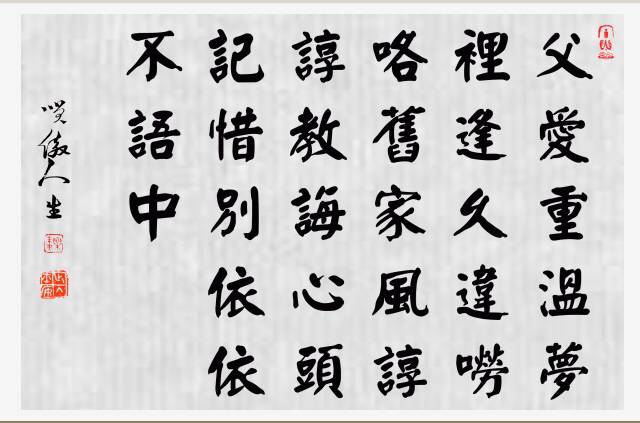 父愛重溫夢
裡逢久違嘮
咯舊家風諄
諄教誨心頭
記惜別依依
不語中
笑傲人生